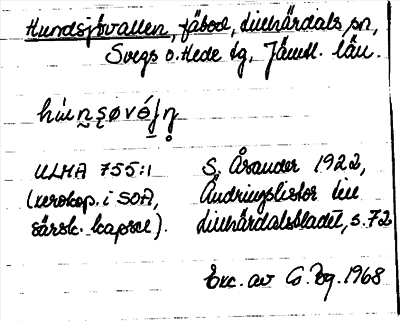 Hundsjövallen, fäbod, Lillhärdals sn,
Svegs o. Hede tg, Jämtl. län.
ULMA 755:1
(xerokop. i SOA,
särsk. kapsel).
S. Åsander 1922,
Ändringslistor till
Lillhärdalsbladet, s. 72
Exc. av G. Bg. 1968